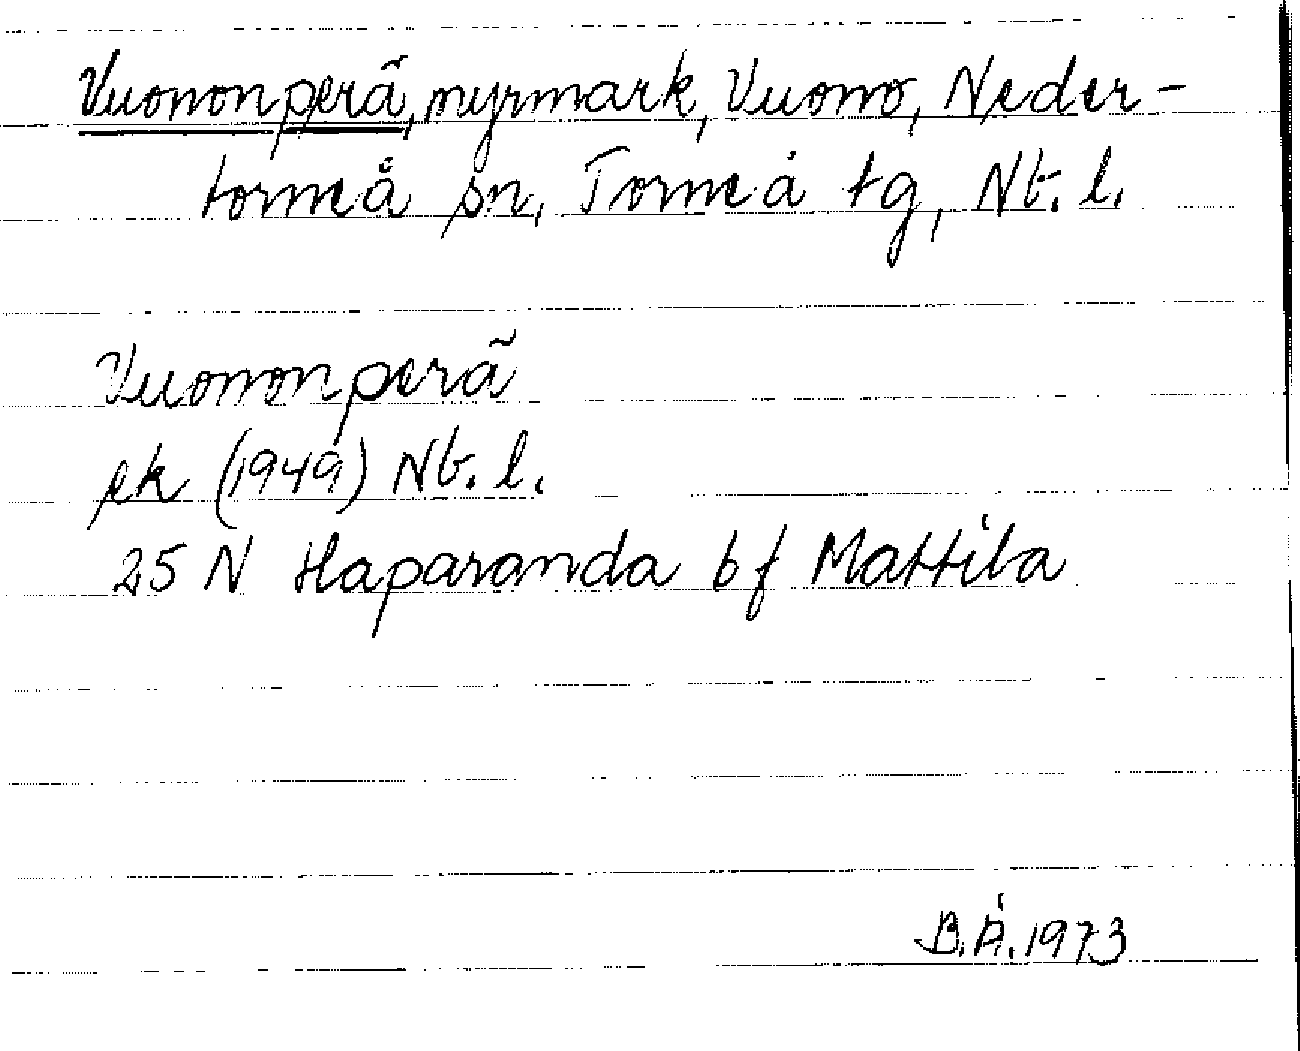 Vuononperä, myrmark, Vuono, Neder-
torneå sn, Torneå tg, Nb. l.
Vuononperä
ek (1949) Nb. l.
25 N Haparanda bf Mattila
B.Å. 1973